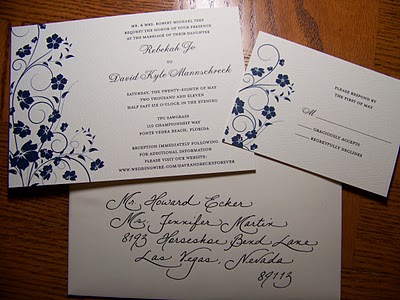 MR. & MRS. ROBERT MICHAEL TEES
REQUEST THE HONOR OF YOUR PRESENCE
AT THE MARRIAGE OF THEIR DAUGHTER
Rebekah Jo
TO
David Kyle Mannschreck
SATURDAY, THE TWENTY-EIGHTH OF MAY
TWO THOUSAND AND ELEVEN
HALF PAST SIX O'CLOCK IN THE EVENING
TPC SAWGRASS
110 CHAMPIONSHIP WAY
PONTE VEDRA BEACH, FLORIDA
RECEPTION IMMEDIATELY FOLLOWING
FOR ADDITIONAL INFORMATION
PLEASE VISIT OUR WEBSITE:
WWW.WEDDINGWIRE.COM/DAVEANDBECKYFOREVER
PLEASE RESPOND BY
THE FIRST OF MAY
M
GRACIOUSLY ACCEPTS
REGRETFULLY DECLINES
Mr. Howard Ecker
Ms. Jennifer Martin
8193 Horseshoe Bend Lane
Las Vegas, Nevada
89113